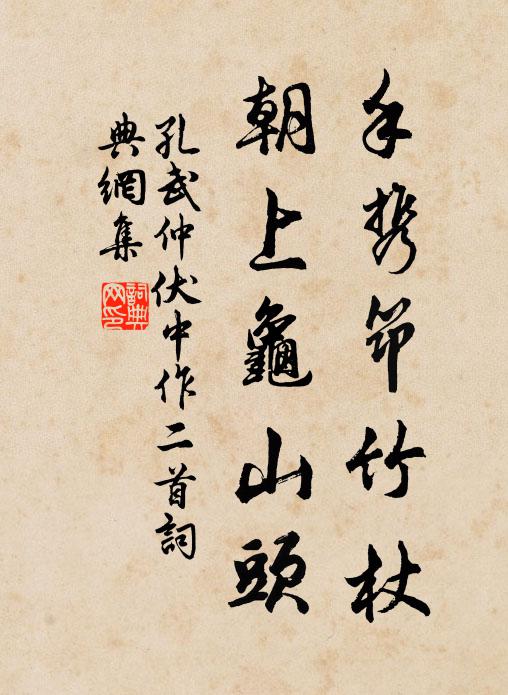 手携筇竹杖
朝上龜山頭
孔武仲伏中作二首詞
典網集
詞典
网印